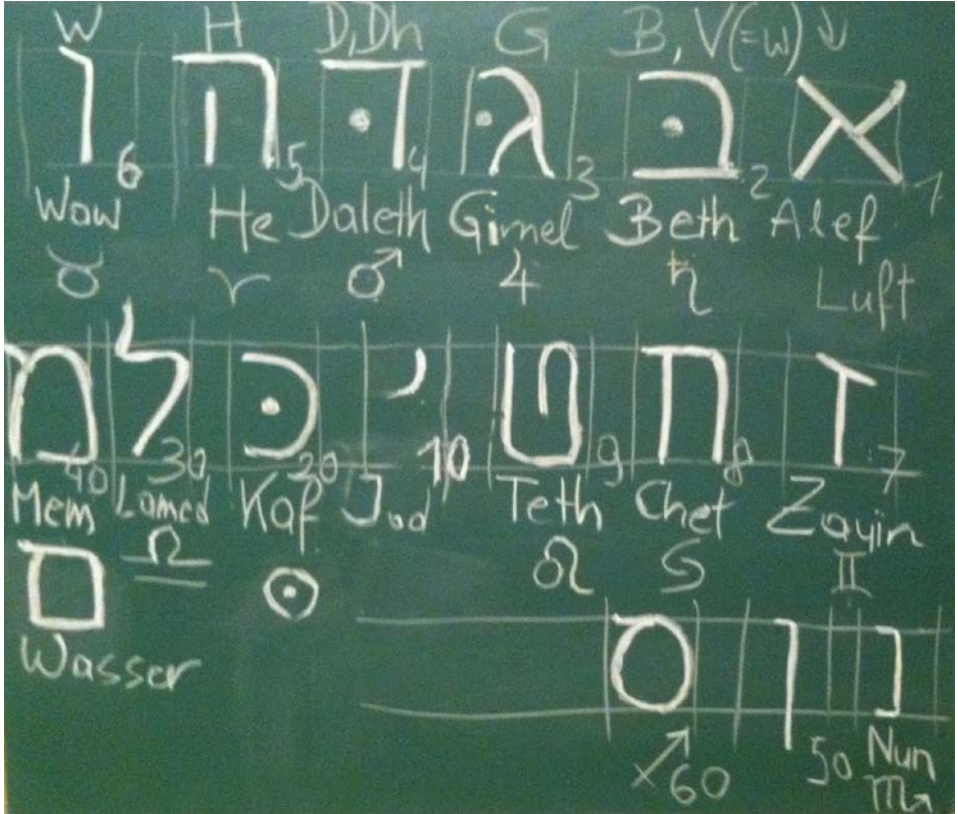 W H D, Dh G B, V(=w) ↓
ו ה דּ גּ בּ א
6 5 4 3 2 1
Waw He Daleth Gimel Beth Alef
♉ ♈ ♂ ♃ ♄ Luft
מ ל כּ י ט ח ז
40 30 20 10 9 8 7
Mem Lamed Kaf Jod Teth Chet Zayin
ם ♎ ☉ ♌ ♋ ♊
Wasser
ס ן נ
60 50 Nun
♏